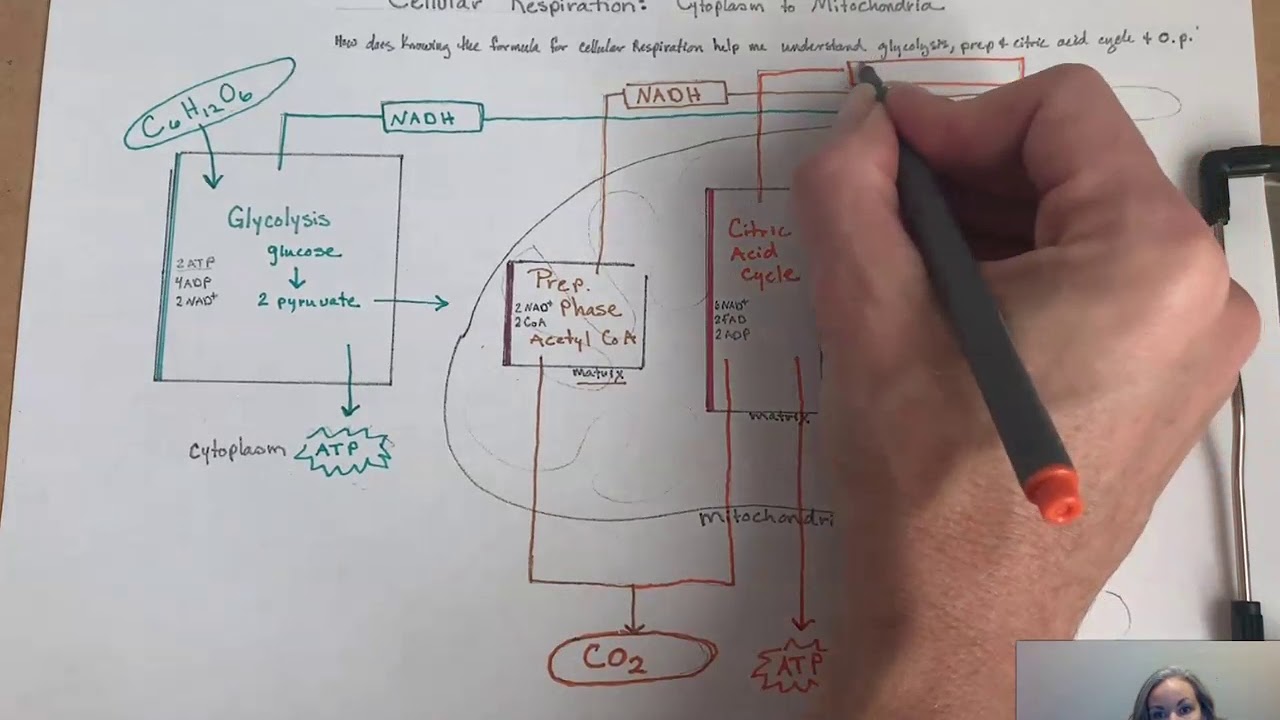 Cellular Respiration: Cytoplasm to Mitochondria
How does knowing the formula for cellular Respiration help me understand glycolysis, prep & citric acid cycle & O.P.
C6H12O6
NADH
NADH
Glycolysis
glucose
2 pyruvate
2 ATP
4ADP
2 NAD+
Cytoplasm
ATP
Prep.
Phase
Acetyl CoA
2 NAD+
2 CoA
matrix
Citric
Acid
Cycle
6NAD+
2FAD
2ADP
matrix
mitochondri
CO2
ATP